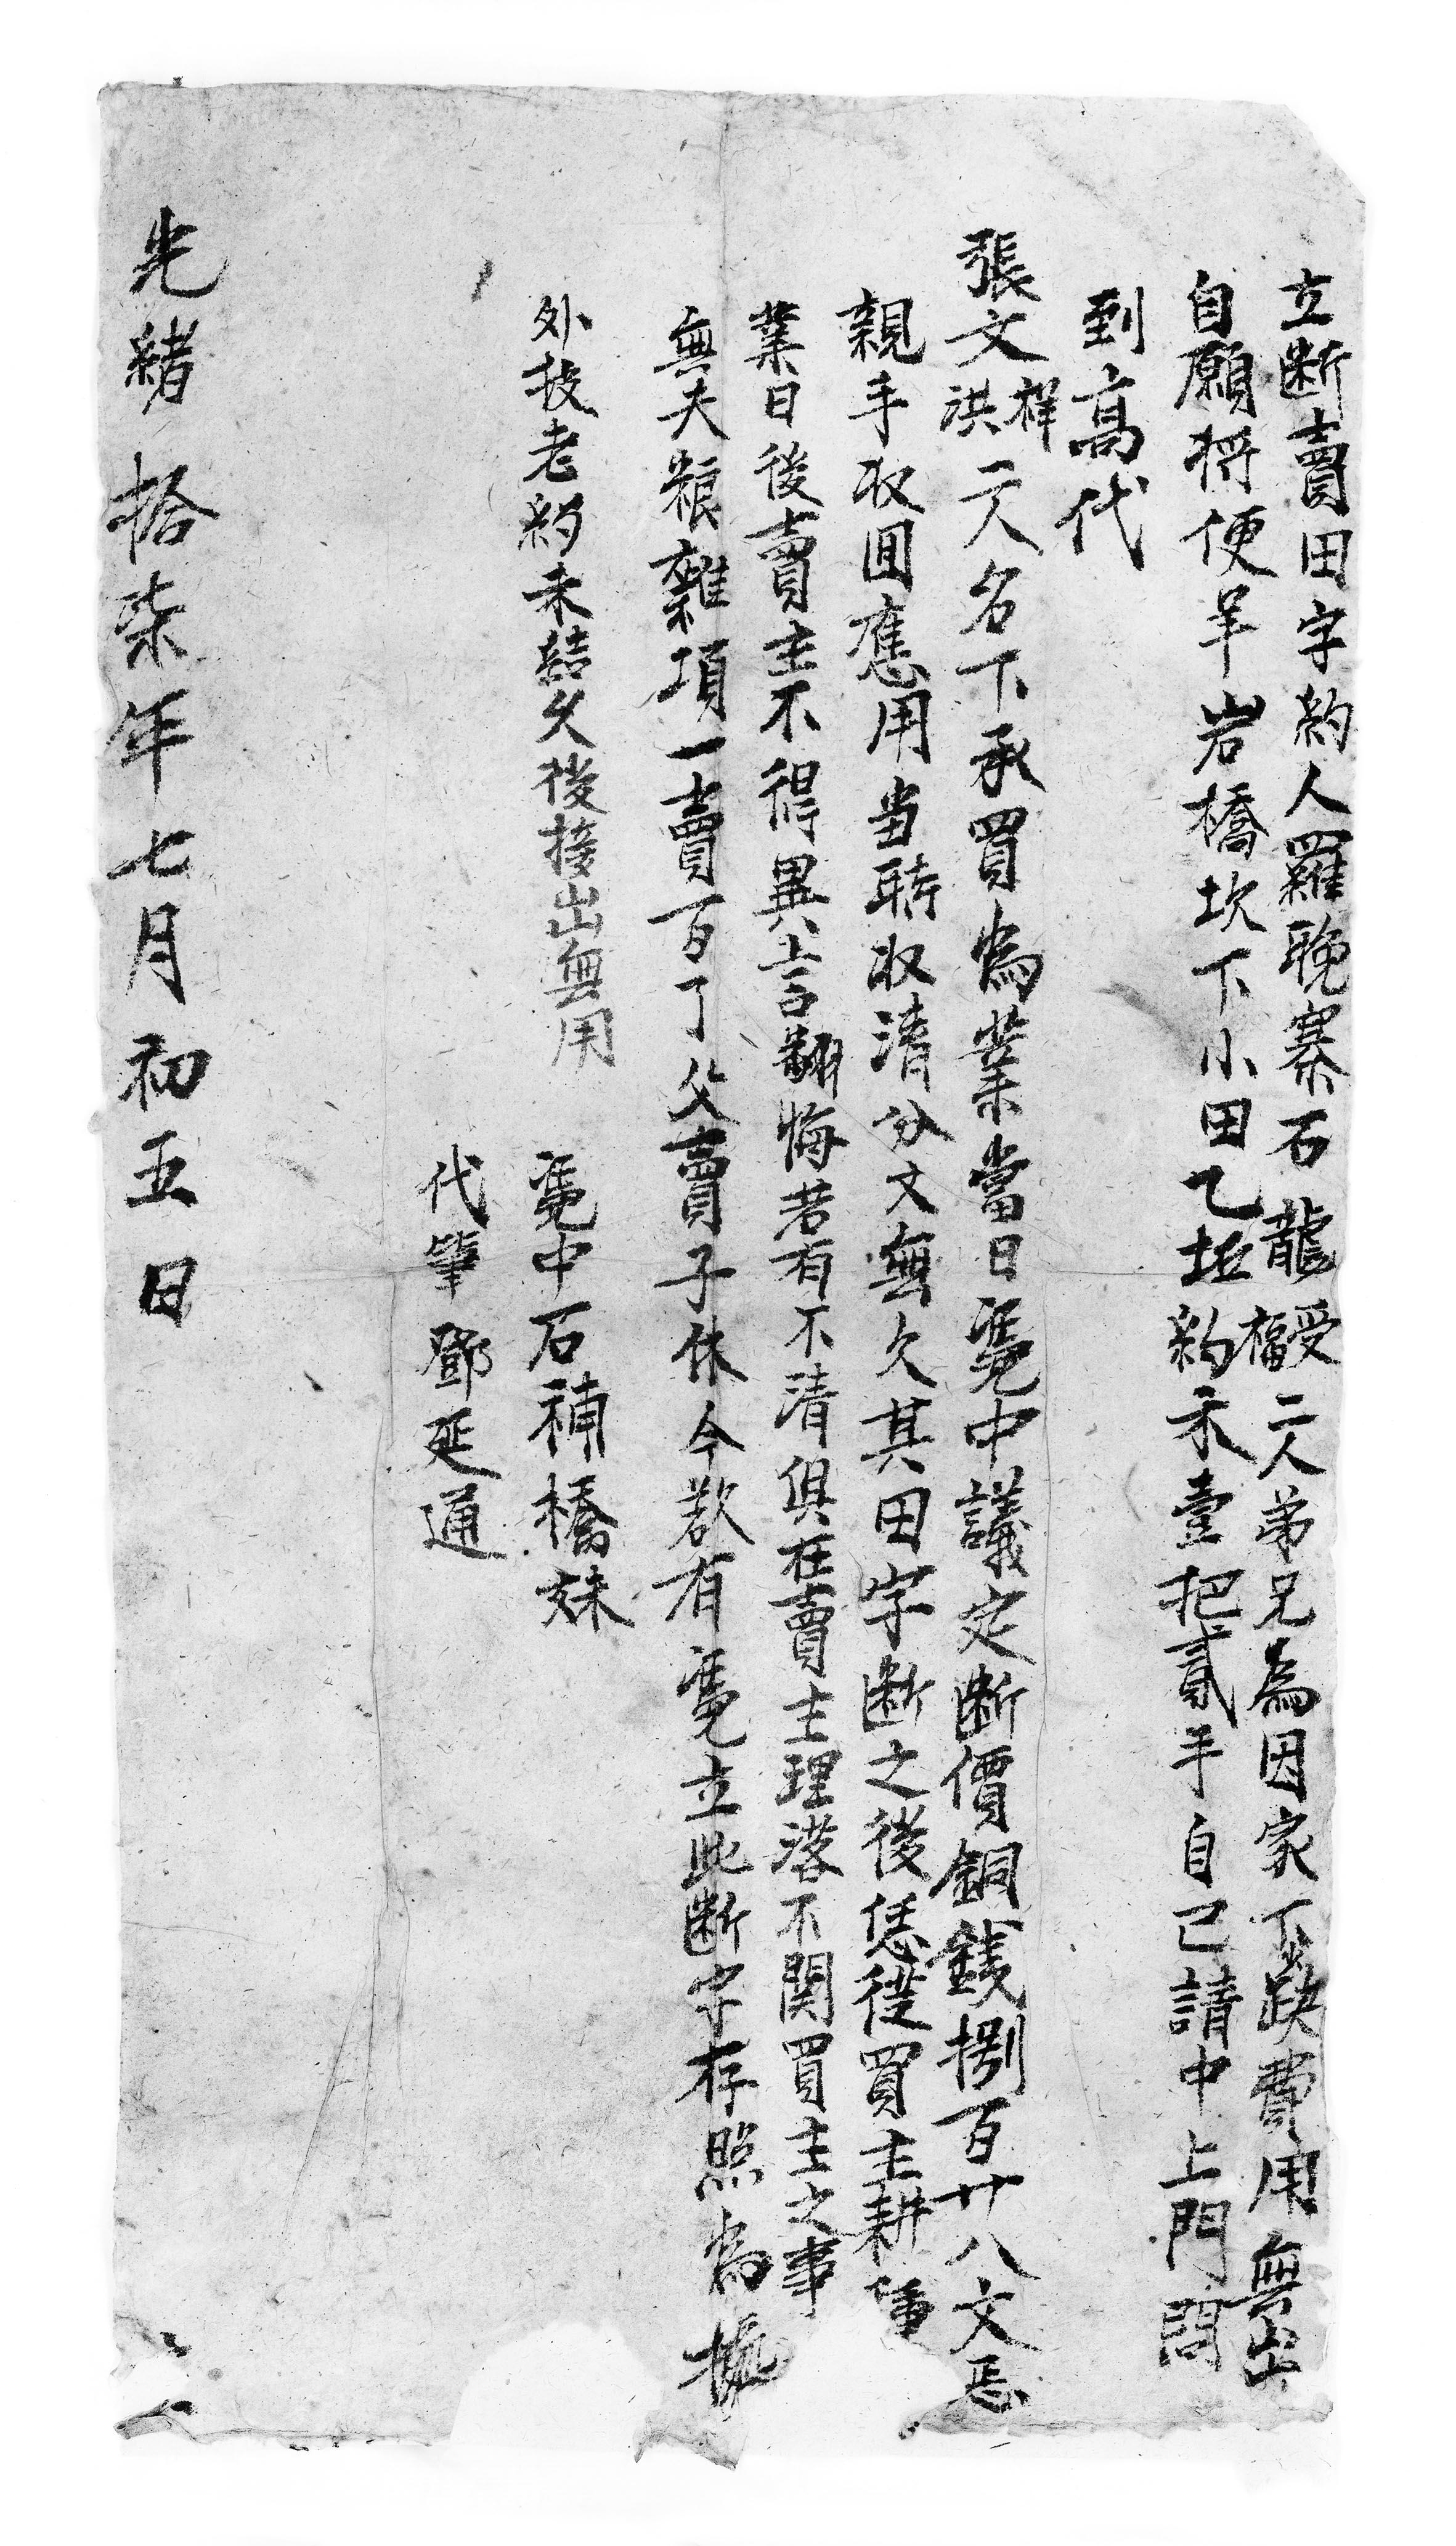 立断賣田字約人羅晚寨石龍受福二人弟兄為因家下缺費用無出
自願将便羊岩橋坎下小田乙坵約禾壹把貳手自己請中上門問
到高代
張文祥洪二人名下承買為業當日凴中議定断價銅錢捌百廿八文
親手収囬應用当時収清分文無欠其田字断之後恁從買主耕種
業日後賣主不得異言翻悔若有不清俱在賣主理落不関買主之事
無夫粮雜項一賣百了父賣子休今欲有凴立此断字存照為據
外投老約未結久後接出無用
凴中石補橋妹
代筆鄧延通
光緒拾柒年七月初五日